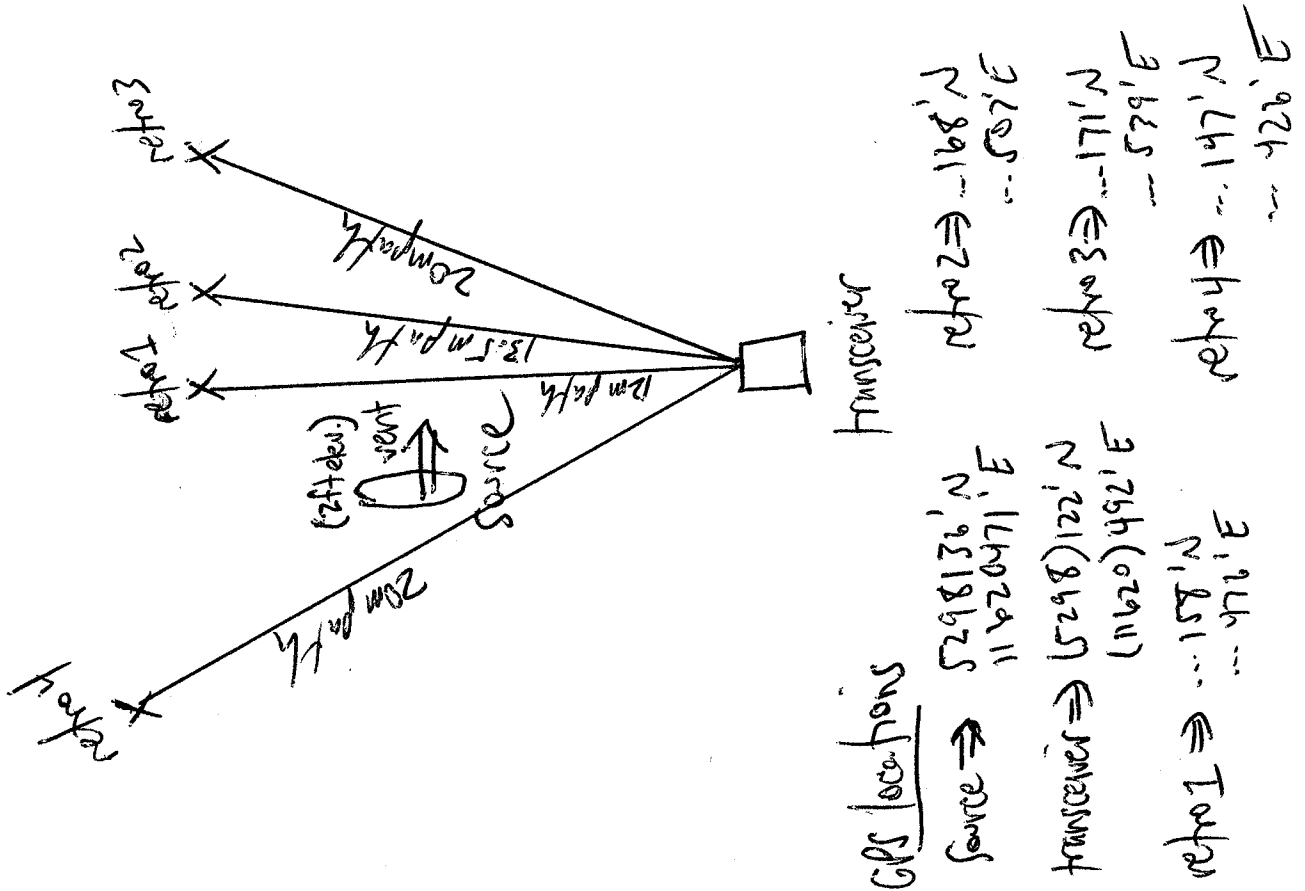 retro4
retro1
retro2
retro3
20m path
12m path
13.5m path
20m path
(2ft elev.)
vent
Source
transceiver
GPS locations
Source ⇒ 5298136' N
11620471' E
transceiver ⇒ (5298)122' N
(11620)492' E
retro1 ⇒ ...158' N
...472' E
retro2 ⇒ ...168' N
...507' E
retro3 ⇒ ...171' N
...539' E
retro4 ⇒ ...147' N
...426' E